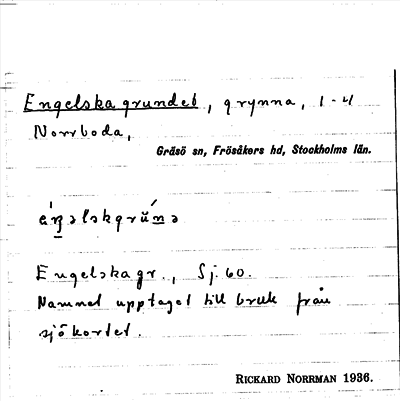 Engelska grundet, grynna, 1-4
Norrboda,
Gräsö sn, Frösåkers hd, Stockholms län.
Engelskagr., Sj. 60.
Namnet upptaget till bruk från
sjökortet.
RICKARD NORRMAN 1936.